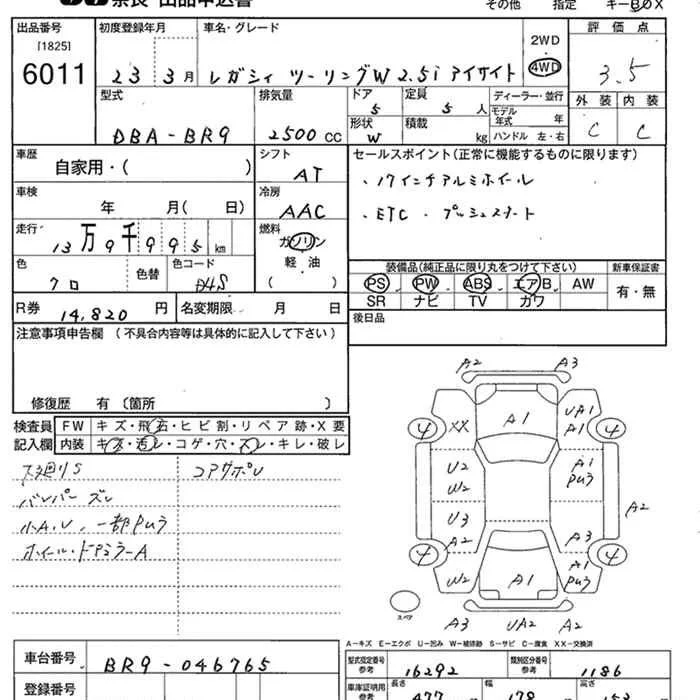 奈良 出品申込書
その他 指定 キーBOX
出品番号 初度登録年月 車名・グレード 2WD 評価点
[1825]
6011 23 3月 レガシィ ツーリングW 2.5i アイサイト 4WD 3.5
型式 排気量 ドア 5 定員 5 人 ディーラー・並行 外装 内装
モデル年式 年
DBA-BR9 2500 CC 形状 W 積載 kg ハンドル 左・右 C C
車歴 自家用・( ) シフト AT セールスポイント(正常に機能するものに限ります)
車検 年 月( 日) 冷房 AAC ・17インチアルミホイール
・ETC ・プッシュスタート
走行 13万9千995 km 燃料 ガソリン
軽・油
( )
色 クロ 色替 色コード D4S
装備品(純正品に限り丸をつけて下さい) 新車保証書
PS PW ABS エアB AW 有・無
SR ナビ TV カワ
R券 14,820 円 名変期限 月 日
後日品
注意事項申告欄 (不具合内容等は具体的に記入して下さい)
修復歴 有〔箇所 〕
検査員 FW キズ・飛石・ヒビ割・リペア跡・X要
記入欄 内装 キズ・汚レ・コゲ・穴・スレ・キレ・破レ
コアサポレ
バンパーズレ
小A.U、一部PUラ
ホイール・ドアミラーA
A2 A3
A1
XX UA1
A1
4 4
U2 A1
W2 PUラ
U3 A2
A2 A3
4 4
W2 A1 A1
PUラ
スペア
A3 UA2 A2
A-キズ E-エクボ U-凹み W-補修跡 S-サビ C-腐食 XX-交換済
車台番号 BR9-046765
型式指定番号 参考 16292 類別区分番号 参考 1186
登録番号
車庫証明用 参考 長さ 477 幅 178 高さ 153